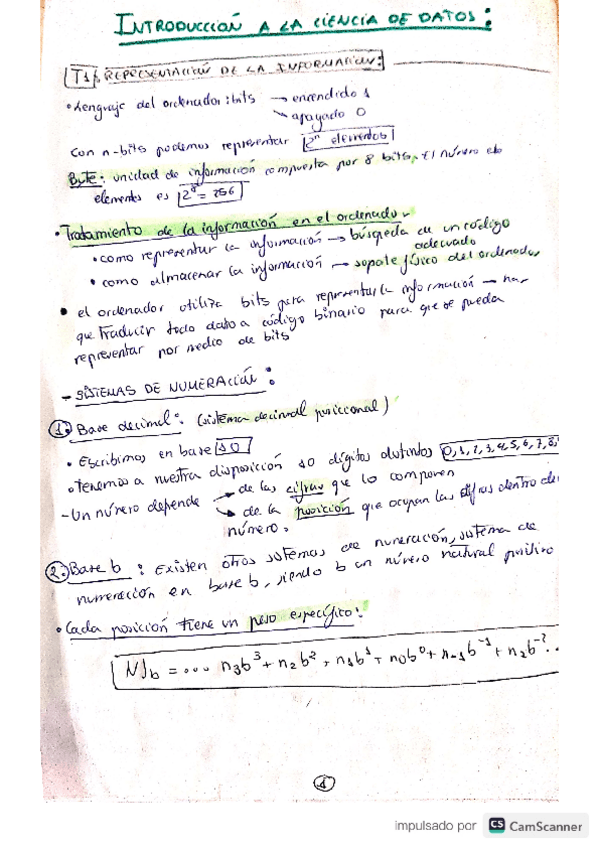 INTRODUCCIÓN A LA CIENCIA DE DATOS:
T1. REPRESENTACIÓN DE LA INFORMACIÓN:
• Lenguaje del ordenador: bits → encendido 1
→ apagado 0
Con n-bits podemos representar 2ⁿ elementos
Byte: unidad de información compuesta por 8 bits. El número de
elementos es 2⁸ = 256
• Tratamiento de la información en el ordenador
• como representar la información → búsqueda de un código
adecuado
• como almacenar la información → soporte físico del ordenador
• el ordenador utiliza bits para representar la información → hay
que traducir todo dato a código binario para que se pueda
representar por medio de bits
- SISTEMAS DE NUMERACIÓN:
1. Base decimal: (sistema decimal posicional)
• Escribimos en base 10
• Tenemos a nuestra disposición 10 dígitos distintos 0,1,2,3,4,5,6,7,8,
- Un número depende → de las cifras que lo componen
→ de la posición que ocupan las cifras dentro del
número.
2. Base b: Existen otros sistemas de numeración, sistema de
numeración en base b, siendo b un número natural positivo
• Cada posición tiene un peso específico:
N)b = ... n₃b³ + n₂b² + n₁b¹ + n₀b⁰ + n₋₁b⁻¹ + n₋₂b⁻² ..
1
impulsado por CS CamScanner